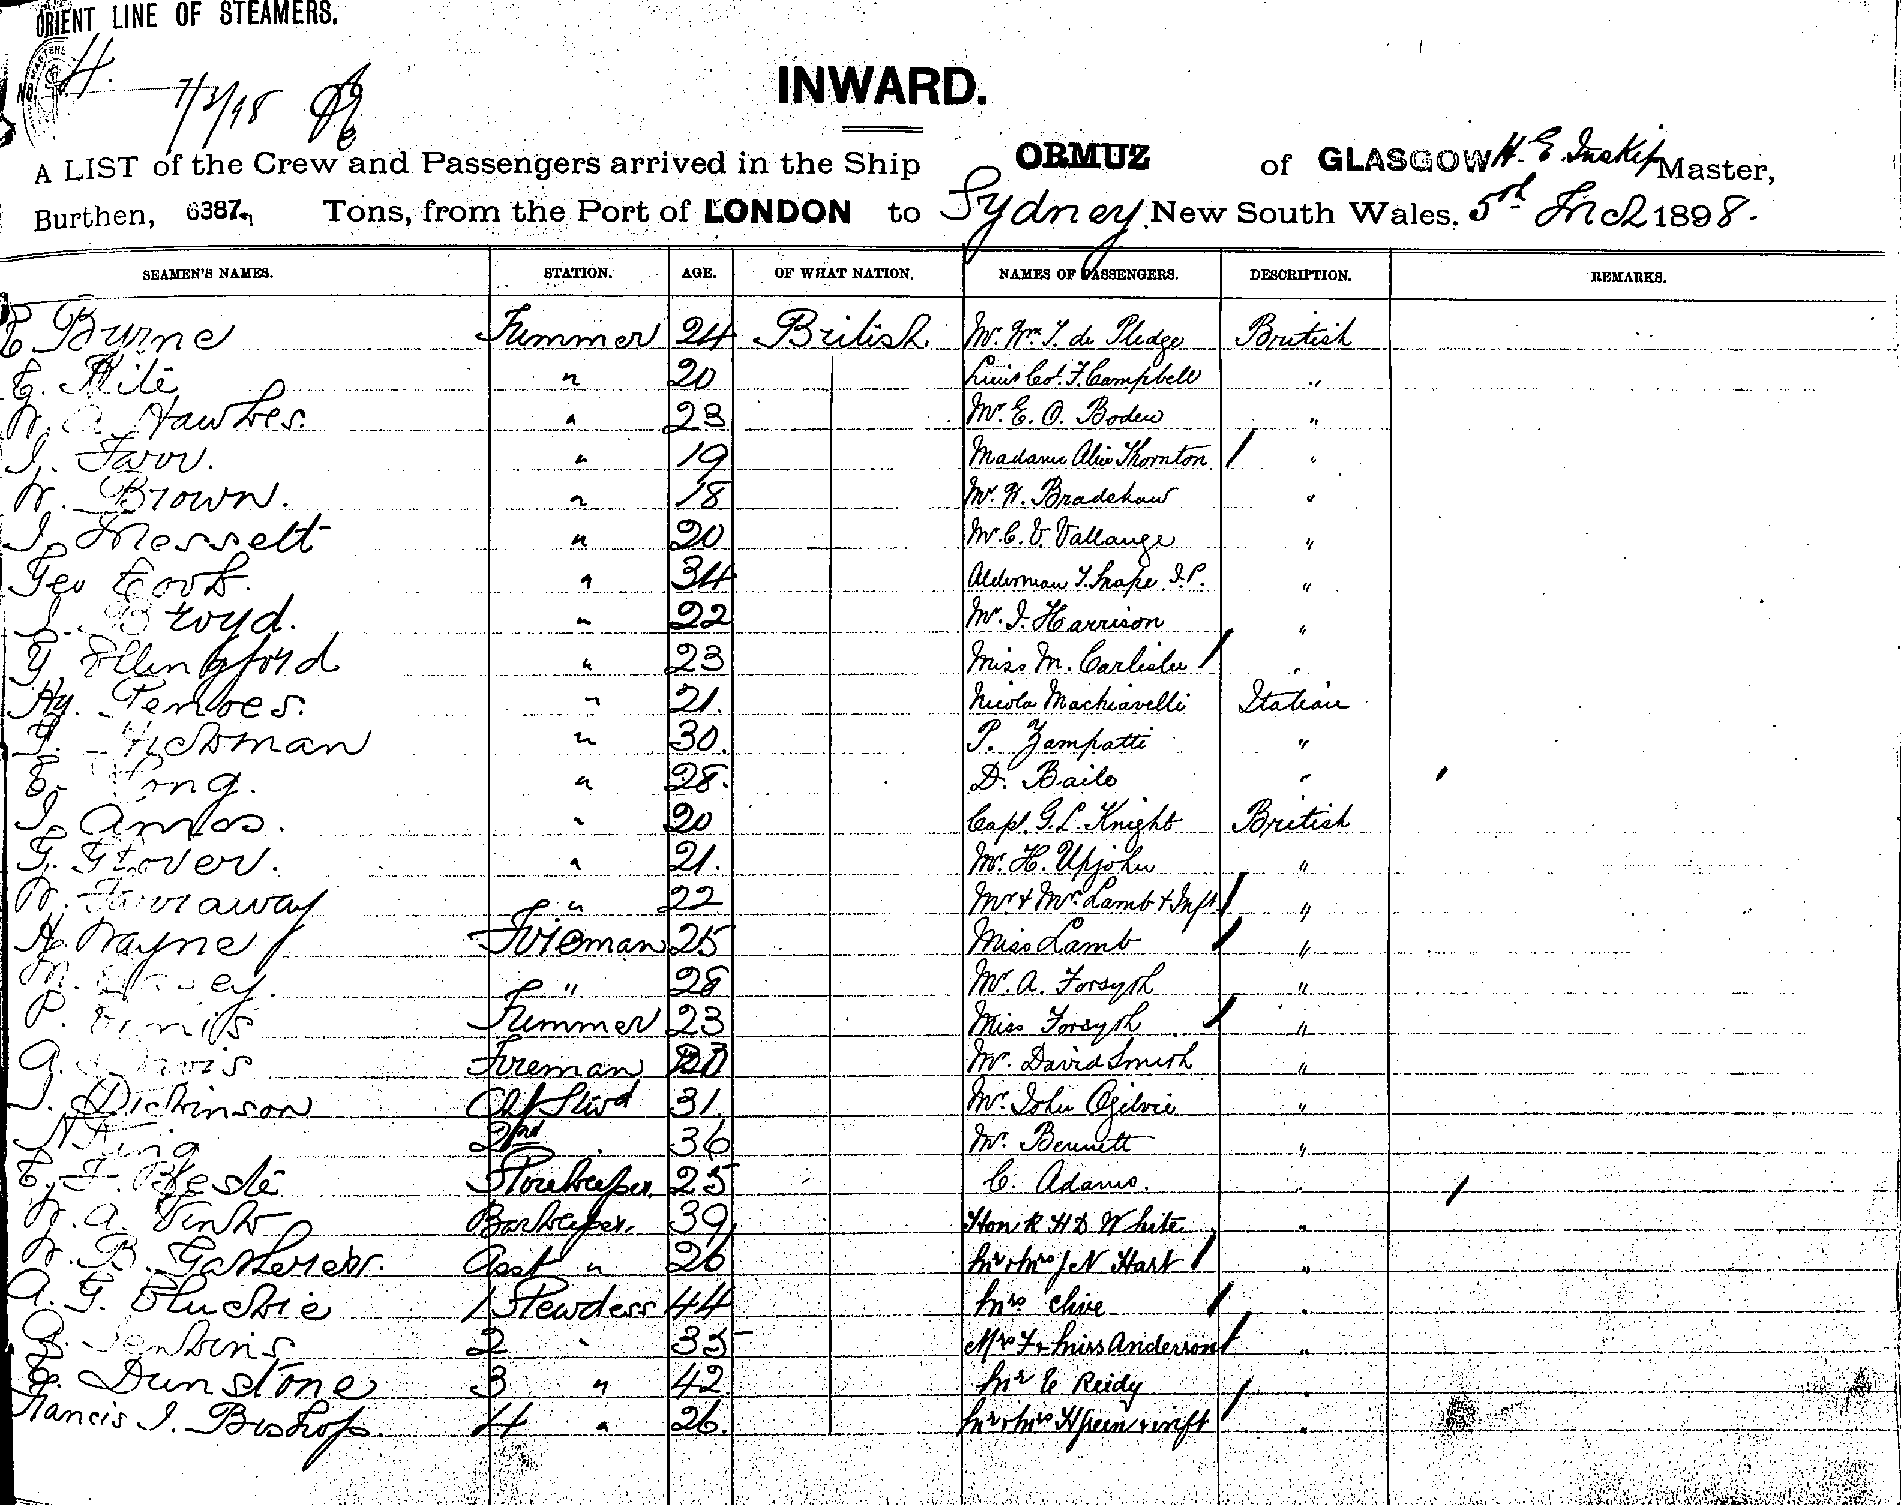 ORIENT LINE OF STEAMERS.
No. 4.
7/3/98
INWARD.
A LIST of the Crew and Passengers arrived in the Ship ORMUZ of GLASGOW H. E. Inskip Master,
Burthen, 6387 Tons, from the Port of LONDON to Sydney, New South Wales, 5th Mch 1898.
SEAMEN'S NAMES. STATION. AGE. OF WHAT NATION. NAMES OF PASSENGERS. DESCRIPTION. REMARKS.
Byrne Trimmer 24 British. Mr. Wm. T. de Pledge British
20 Lieut Col. F. Campbell "
W. A. Hawkes. " 23 Mr. E. O. Boden "
J. Farr. " 19 Madame Alice Thornton "
W. Brown. " 18 Mr. W. Bradshaw "
J. Messett " 20 Mr. C. V. Vallange "
Geo Cook. " 34 Alderman T. Snape J.P. "
" 22 Mr. J. Harrison "
G. Ellingford " 23 Miss M. Carlisle "
Hy. " 21. Nicola Machiavelli Italian
" 30. P. Zampatti "
" 28. D. Bailo "
J. Amos. " 20 Capt. G. L. Knight British
G. Glover. " 21. Mr. H. Upjohn "
W. " 22 Mr & Mrs Lamb & Inft "
H. Wayne Fireman 25 Miss Lamb "
M. " 28 Mr. A. Forsyth "
P. Trimmer 23 Miss Forsyth "
A. Fireman Mr. David Smith "
J. Dickinson Chf Stwd 31. Mr. John Ogilvie "
King 2nd 36 Mr. Bennett "
Storekeeper 25 C. Adams. "
W. A. Barkeeper. 39 Hon R H D White "
W. B. Asst " 26 Mr & Mrs J N Hart "
A. G. 1 Stewdess 44 Mrs Clive "
Jenkins 2 " 35 Mrs F & Miss Anderson "
E. Dunstone 3 " 42 Mr E Reidy "
Francis J. Bishop. 4 " 26. Mr & Mrs "